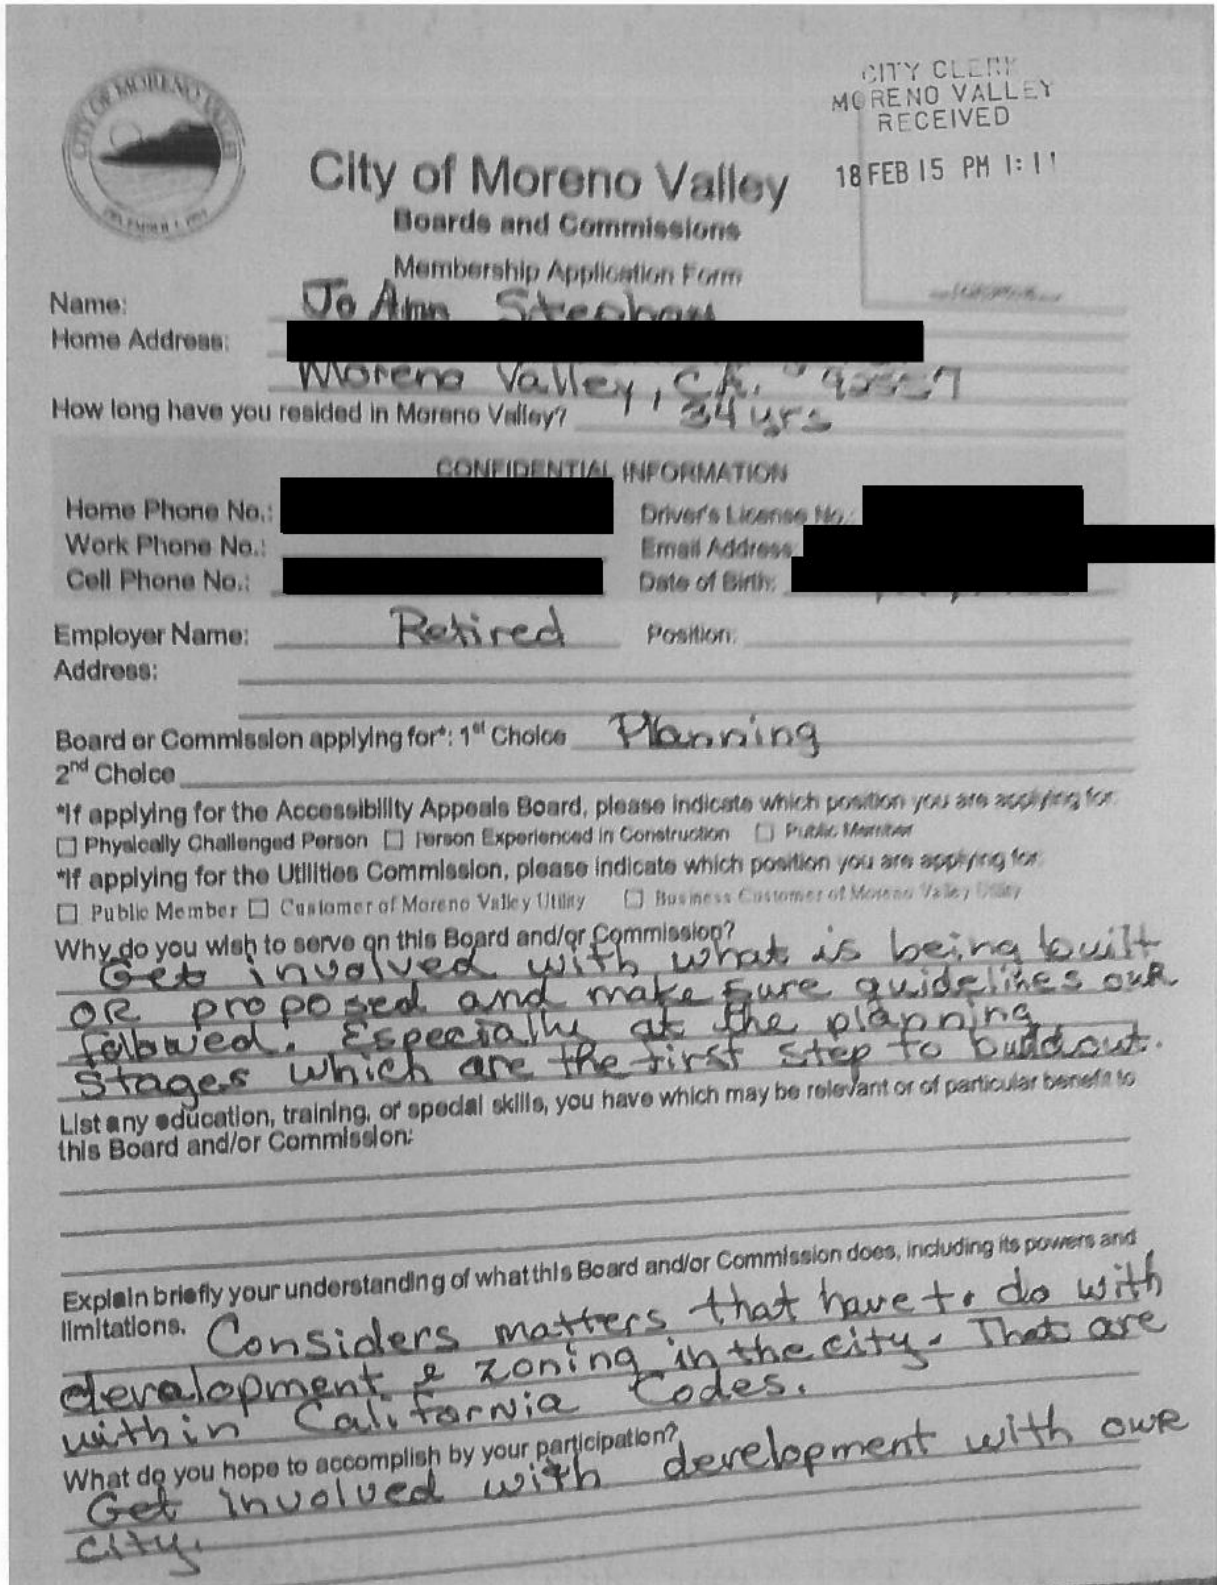 CITY OF MORENO VALLEY
CITY CLERK
MORENO VALLEY
RECEIVED
18 FEB 15 PM 1:11
City of Moreno Valley
Boards and Commissions
Membership Application Form
Name: Jo Ann Stephan
Home Address:
Moreno Valley, CA. 92557
How long have you resided in Moreno Valley? 34 yrs
CONFIDENTIAL INFORMATION
Home Phone No.: Driver's License No.:
Work Phone No.: Email Address:
Cell Phone No.: Date of Birth:
Employer Name: Retired Position:
Address:
Board or Commission applying for*: 1st Choice Planning
2nd Choice
*If applying for the Accessibility Appeals Board, please indicate which position you are applying for:
☐ Physically Challenged Person ☐ Person Experienced in Construction ☐ Public Member
*If applying for the Utilities Commission, please indicate which position you are applying for:
☐ Public Member ☐ Customer of Moreno Valley Utility ☐ Business Customer of Moreno Valley Utility
Why do you wish to serve on this Board and/or Commission?
Get involved with what is being built
OR proposed and make sure guidelines our
followed. Especially at the planning
stages which are the first step to buildout.
List any education, training, or special skills, you have which may be relevant or of particular benefit to
this Board and/or Commission:
Explain briefly your understanding of what this Board and/or Commission does, including its powers and
limitations. Considers matters that have to do with
development & zoning in the city. That are
within California Codes.
What do you hope to accomplish by your participation?
Get involved with development with our
city.